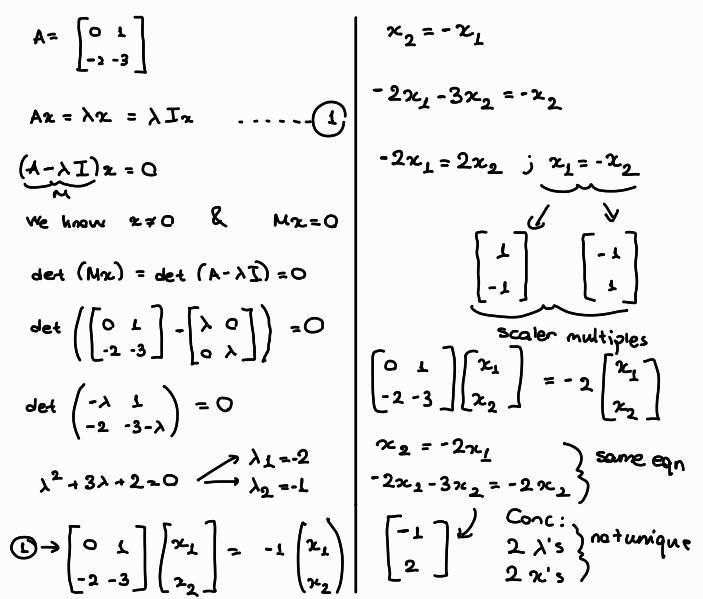 A = [0 1; -2 -3]
Ax = λx = λIx ...... ①
(A - λI)x = 0
M
We know x ≠ 0 & Mx = 0
det (Mx) = det (A - λI) = 0
det ([0 1; -2 -3] - [λ 0; 0 λ]) = 0
det (-λ 1; -2 -3-λ) = 0
λ² + 3λ + 2 = 0 → λ1 = -2 → λ2 = -1
① → [0 1; -2 -3] [x1; x2] = -1 (x1; x2)
x2 = -x1
-2x1 - 3x2 = -x2
-2x1 = 2x2 ; x1 = -x2
[1; -1] [-1; 1]
scaler multiples
[0 1; -2 -3] [x1; x2] = -2 [x1; x2]
x2 = -2x1
-2x1 - 3x2 = -2x2 } same eqn
[-1; 2]
Conc:
2 λ's
2 x's } not unique